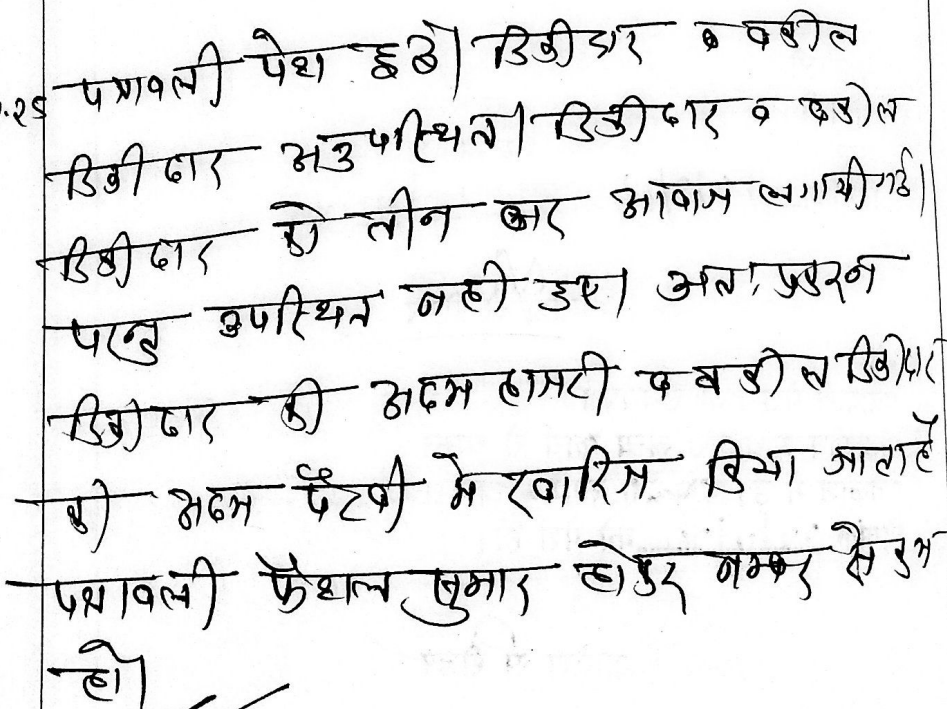 .25 पत्रावली पेश हुई। डिक्रीदार व वकील
डिक्रीदार अनुपस्थित। डिक्रीदार व वकील
डिक्रीदार को तीन बार आवाज लगायी गई।
परन्तु उपस्थित नही हुए। अतः प्रकरण
डिक्रीदार की अदम हाजरी व वकील डिक्रीदार
की अदम पैरवी में खारिज किया जाता है
पत्रावली फैशल शुमार होकर नम्बर से कम
हो।